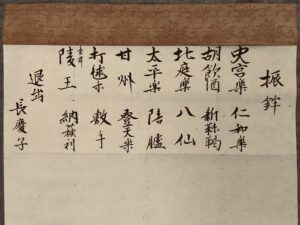 振鉾
央宮樂 仁和樂
胡飲酒 新靺鞨
北庭樂 八仙
太平樂 陪臚
甘州 登天樂
打毬樂 敷手
陵王 納蘓利
退出
長慶子